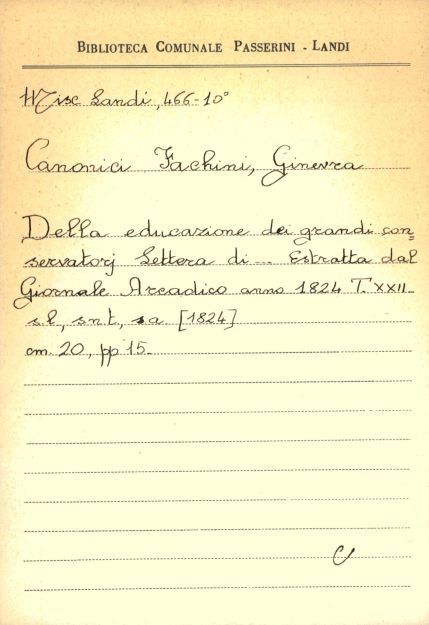 BIBLIOTECA COMUNALE PASSERINI - LANDI
Misc Landi, 466-10°
Canonici Fachini, Ginevra
Della educazione dei grandi con=
servatorj Lettera di ... Estratta dal
Giornale Arcadico anno 1824 T. XXII_
s.l., s.n.t., s.a [1824]
cm. 20, pp 15_
C